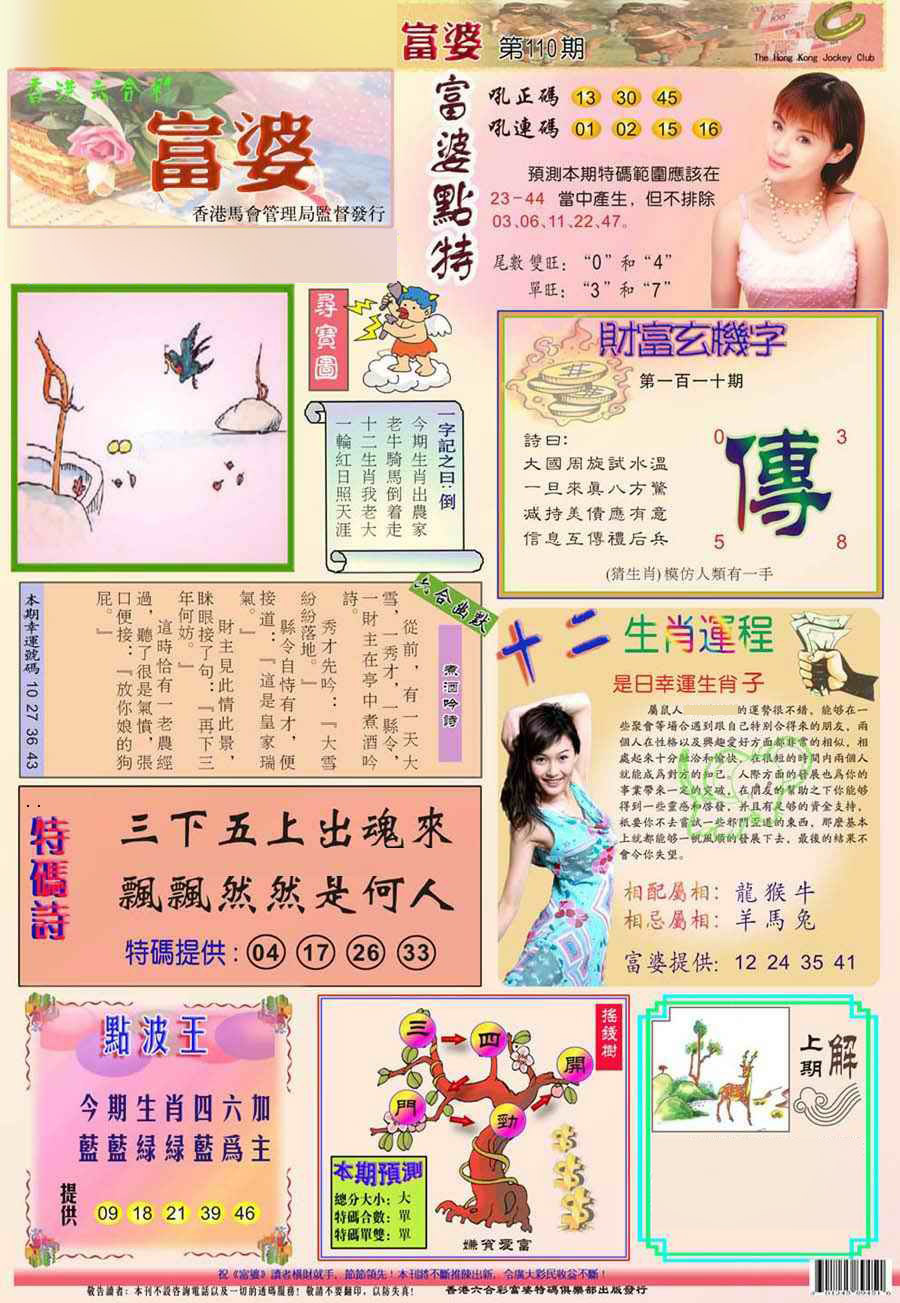 富婆 第110期
The Hong Kong Jockey Club
香港六合彩
富婆
香港馬會管理局監督發行
富婆點特
吼正碼 13 30 45
吼連碼 01 02 15 16
預測本期特碼範圍應該在
23-44 當中產生，但不排除
03、06、11、22、47。
尾數雙旺：“0”和“4”
單旺：“3”和“7”
尋寶圖
一字記之曰：倒
今期生肖出農家
老牛騎馬倒着走
十二生肖我老大
一輪紅日照天涯
財富玄機字
第一百一十期
詩曰：
大國周旋試水溫
一旦來真八方驚
減持美債應有意
信息互傳禮后兵
0 3
傳
5 8
(猜生肖)模仿人類有一手
六合幽默
煮酒吟詩
從前，有一天大
雪，一秀才，一縣令，
一財主在亭中煮酒吟
詩。
秀才先吟：『大雪
紛紛落地。』
縣令自恃有才，便
接道：『這是皇家瑞
氣。』
財主見此情此景，
眯眼接了句：『再下三
年何妨。』
這時恰有一老農經
過，聽了很是氣憤，張
口便接：『放你娘的狗
屁。』
本期幸運號碼 10 27 36 43
十二生肖運程
是日幸運生肖子
屬鼠人的運勢很不錯，能够在一
些聚會等場合遇到跟自己特別合得來的朋友，兩
個人在性格以及興趣愛好方面都非常的相似，相
處起來十分融洽和愉快，在很短的時間內兩個人
就能成爲對方的知己。人際方面的發展也爲你的
事業帶來一定的突破，在朋友的幫助之下你能够
得到一些靈感和啓發，并且有足够的資金支持，
衹要你不去嘗試一些邪門歪道的東西，那麽基本
上就都能够一帆風順的發展下去，最後的結果不
會令你失望。
相配屬相：龍猴牛
相忌屬相：羊馬兔
富婆提供：12 24 35 41
特碼詩
三下五上出魂來
飄飄然然是何人
特碼提供：04 17 26 33
點波王
今期生肖四六加
藍藍緑緑藍爲主
提供 09 18 21 39 46
搖錢樹
三 四 開
門 勁
本期預測
總分大小：大
特碼合數：單
特碼單雙：單
嫌貧愛富
上期解
祝《富婆》讀者橫財就手，節節領先！本刊將不斷推陳出新，令廣大彩民收益不斷！
敬告讀者：本刊不設咨詢電話以及一切的透碼服務！敬請不要翻印，以防失真！ 香港六合彩富婆特碼俱樂部出版發行